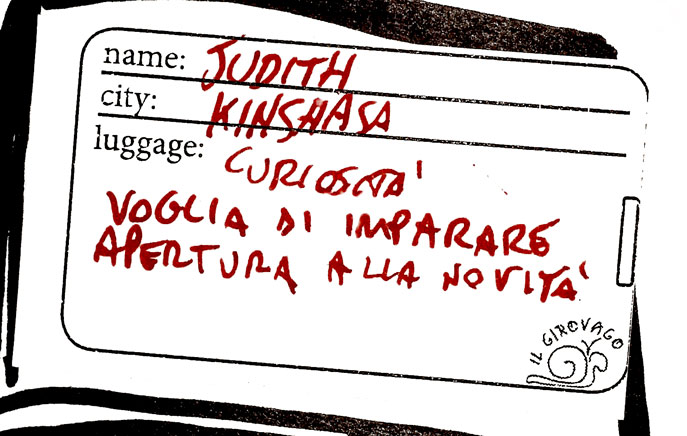 name: JUDITH
city: KINSHASA
luggage: CURIOSITA'
VOGLIA DI IMPARARE
APERTURA ALLA NOVITA'
IL GIROVAGO